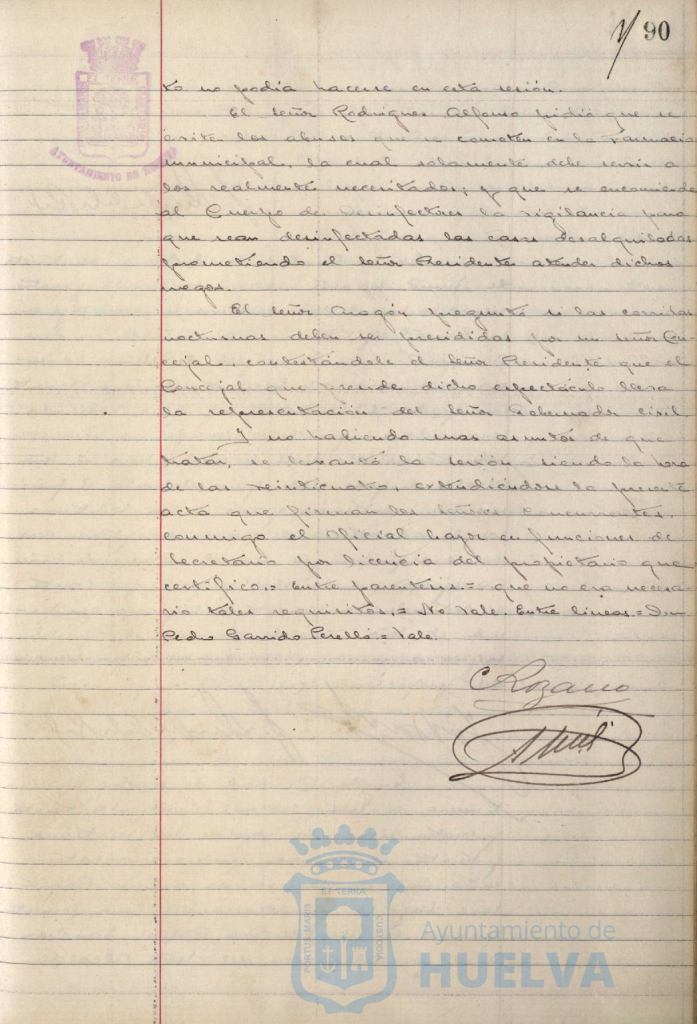 90
to no podía hacerse en esta sesión.
El señor Rodríguez Alfonso pidió que se
eviten los abusos que se cometen en la Farmacia
municipal, la cual solamente debe servir a
los realmente necesitados; y que se encomiende
al Cuerpo de Desinfectores la vigilancia para
que sean desinfectadas las casas desalquiladas
prometiendo el señor Presidente atender dichos
ruegos.
El señor Aragón preguntó si las corridas
nocturnas deben ser presididas por un señor Con-
cejal, contestándole el señor Presidente que el
Concejal que preside dicho espectáculo lleva
la representación del señor Gobernador civil.
Y no habiendo mas asuntos de que
tratar, se levantó la sesión siendo la hora
de las veinticuatro, extendiéndose la presente
acta que firman los señores concurrentes,
conmigo el Oficial Mayor en funciones de
Secretario por licencia del propietario que
certifico.= Entre parentesis.= que no era necesa-
rio tales requisitos.= No Vale. Entre lineas.= Don
Pedro Garrido Perelló.= Vale.
AYUNTAMIENTO DE
PORTUS MARIS
ET TERRÆ
CUSTODIA
Ayuntamiento de
HUELVA